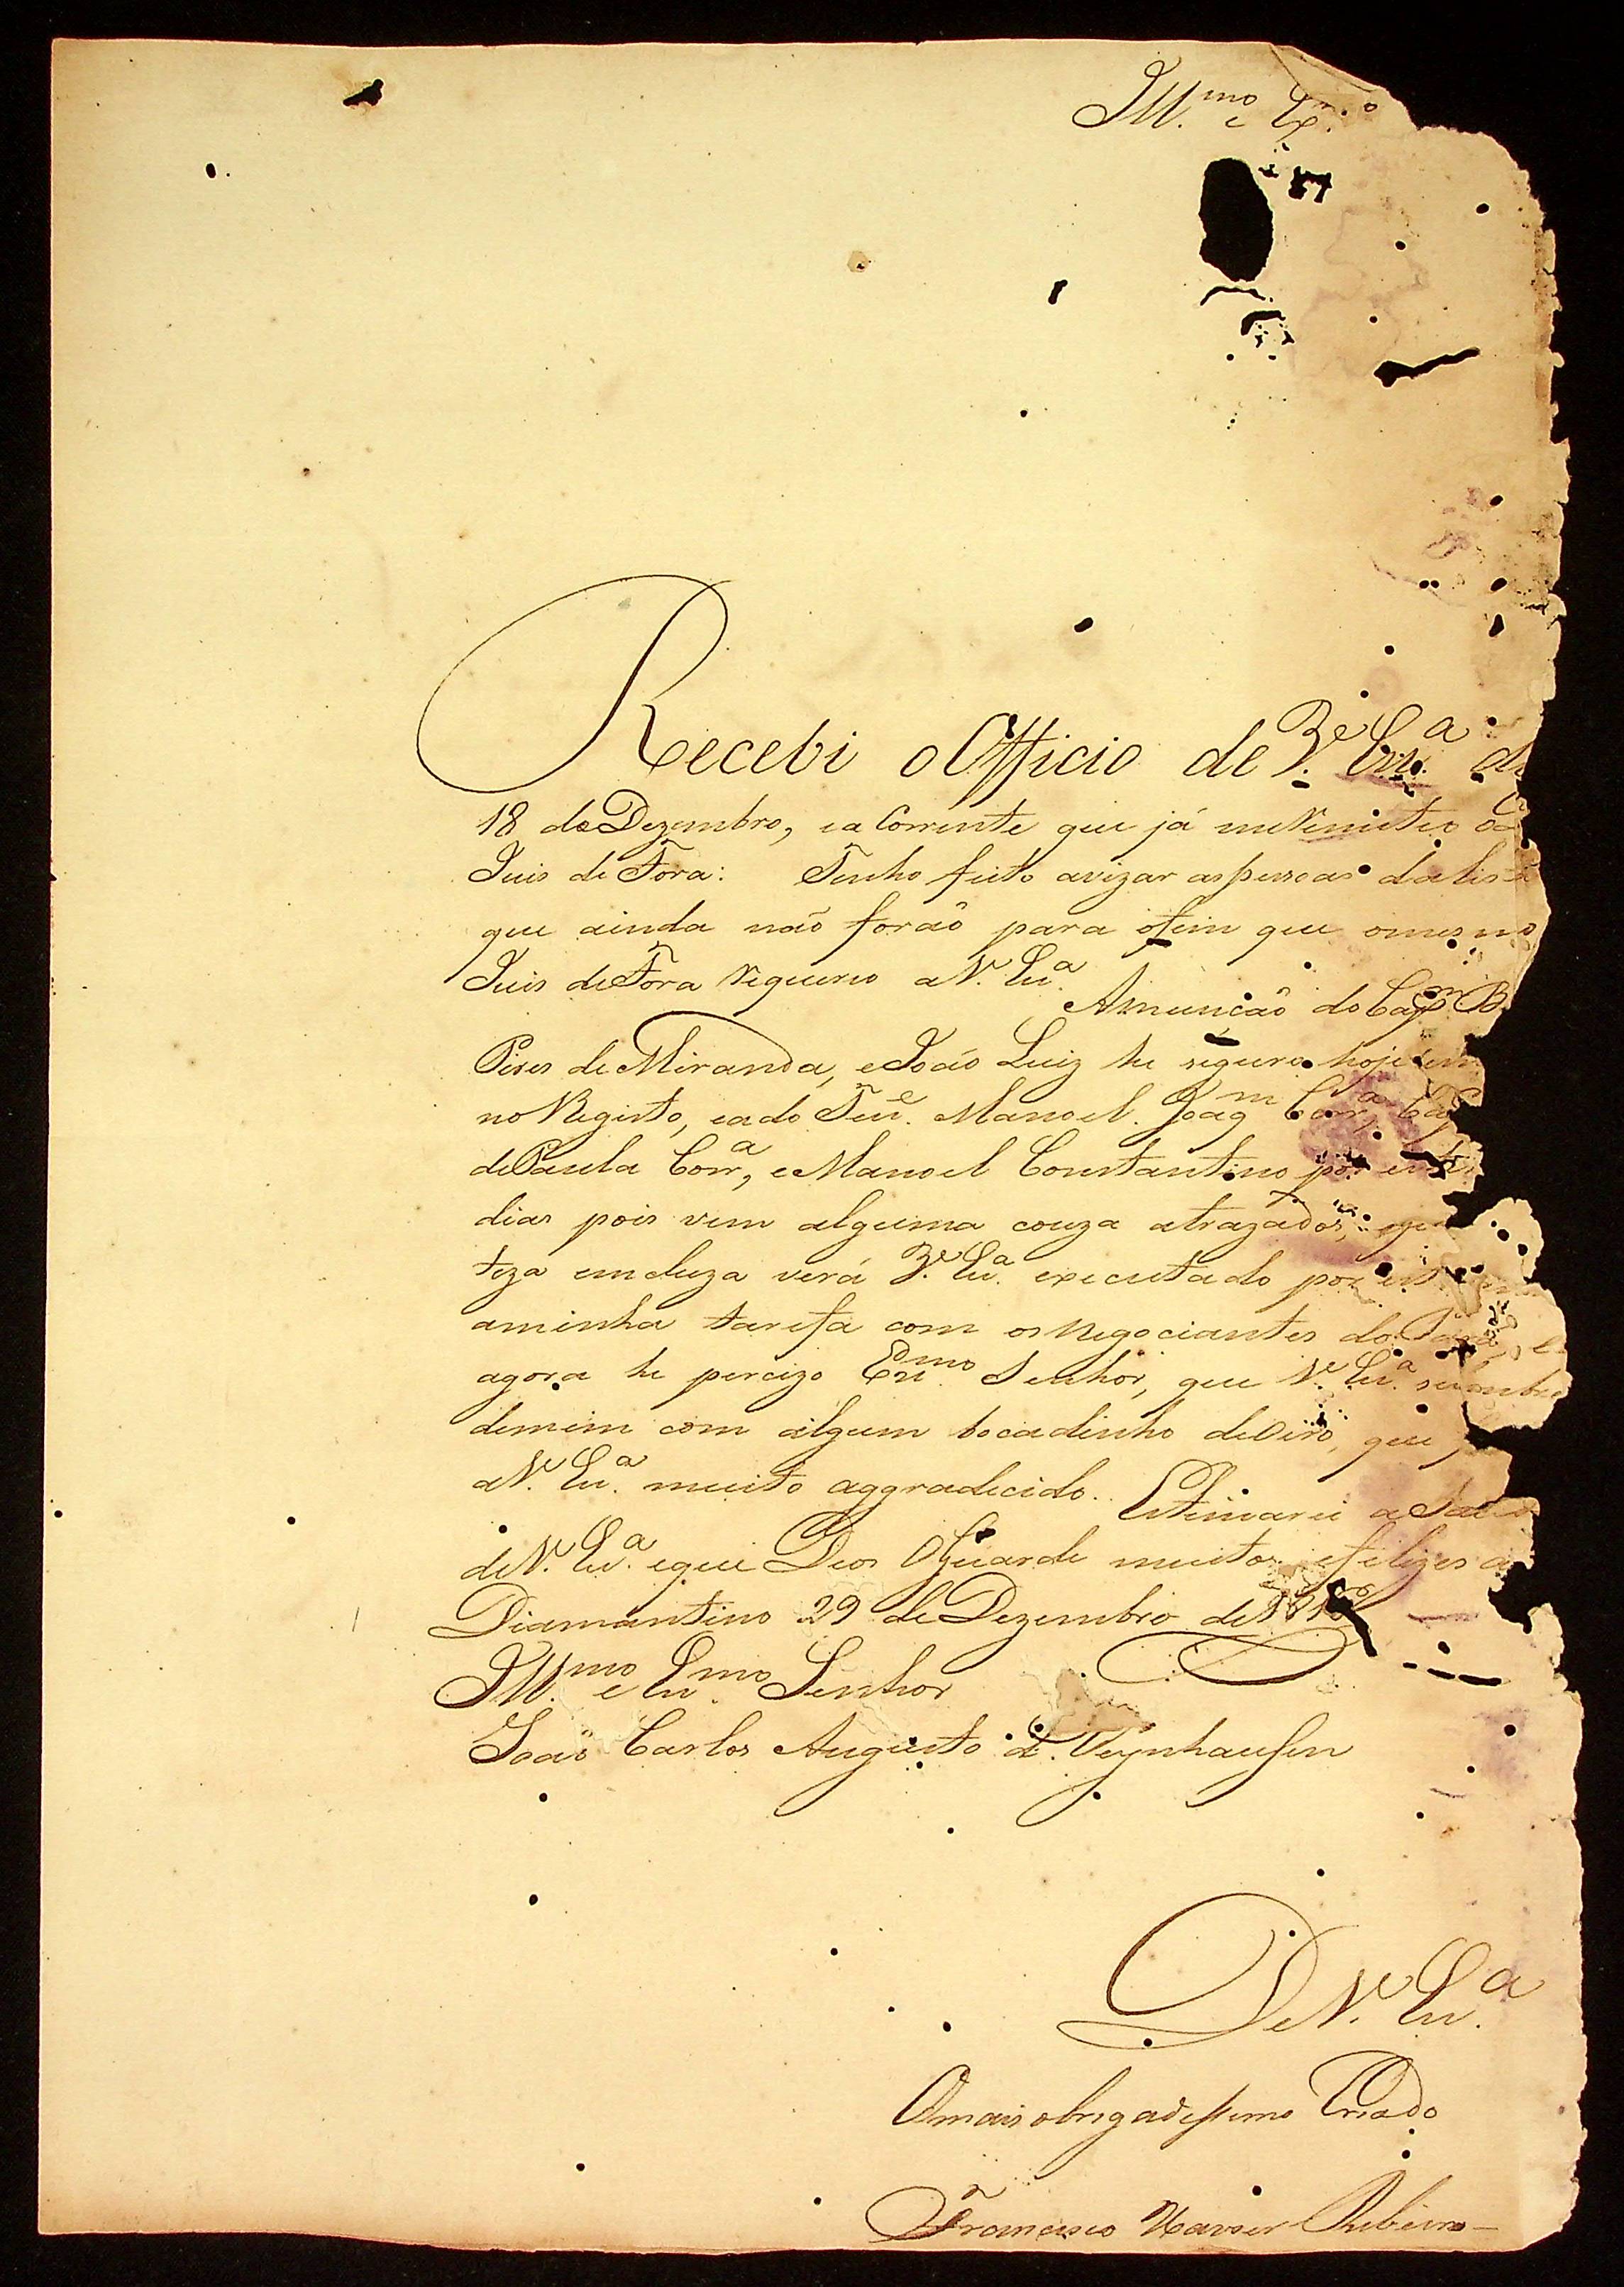 Ill.mo e Ex.mo
Recebi o Officio de V. Ex.a de
18 de Dezembro, e a Corrente que já me Remeteo o
Juis de Fora: Tenho feito avizar as pessoas da lis
que ainda naõ foraõ para o fim que o mesmo
Juis de Fora Requereo a V. Ex.a A Muncaõ do Cap.m B
Pires de Miranda, e Joaõ Luiz he segura hoje em
no Registo, e a do Ten.e Manoel Joaq.m Corr.a
de Paula Corr.a, e Manoel Constantino por estes
dias pois vem alguma couza atrazados, e
teza verá V. Ex.a executado por
a minha tarefa com os Negociantes do
agora he percizo Ex.mo Senhor, que V. Ex.a se lembre
de mim com algum bocadinho de Oiro, que
a V. Ex.a muito aggradecido. Estimarei a Sau
de V. Ex.a e que Deos Guarde muitos e felizes a
Diamantino 29 de Dezembro de
Ill.mo e Ex.mo Senhor
Joaõ Carlos Augusto d'Oeynhausen
De V. Ex.a
O mais obrigadissimo Criado
Francisco Xavier Ribeiro